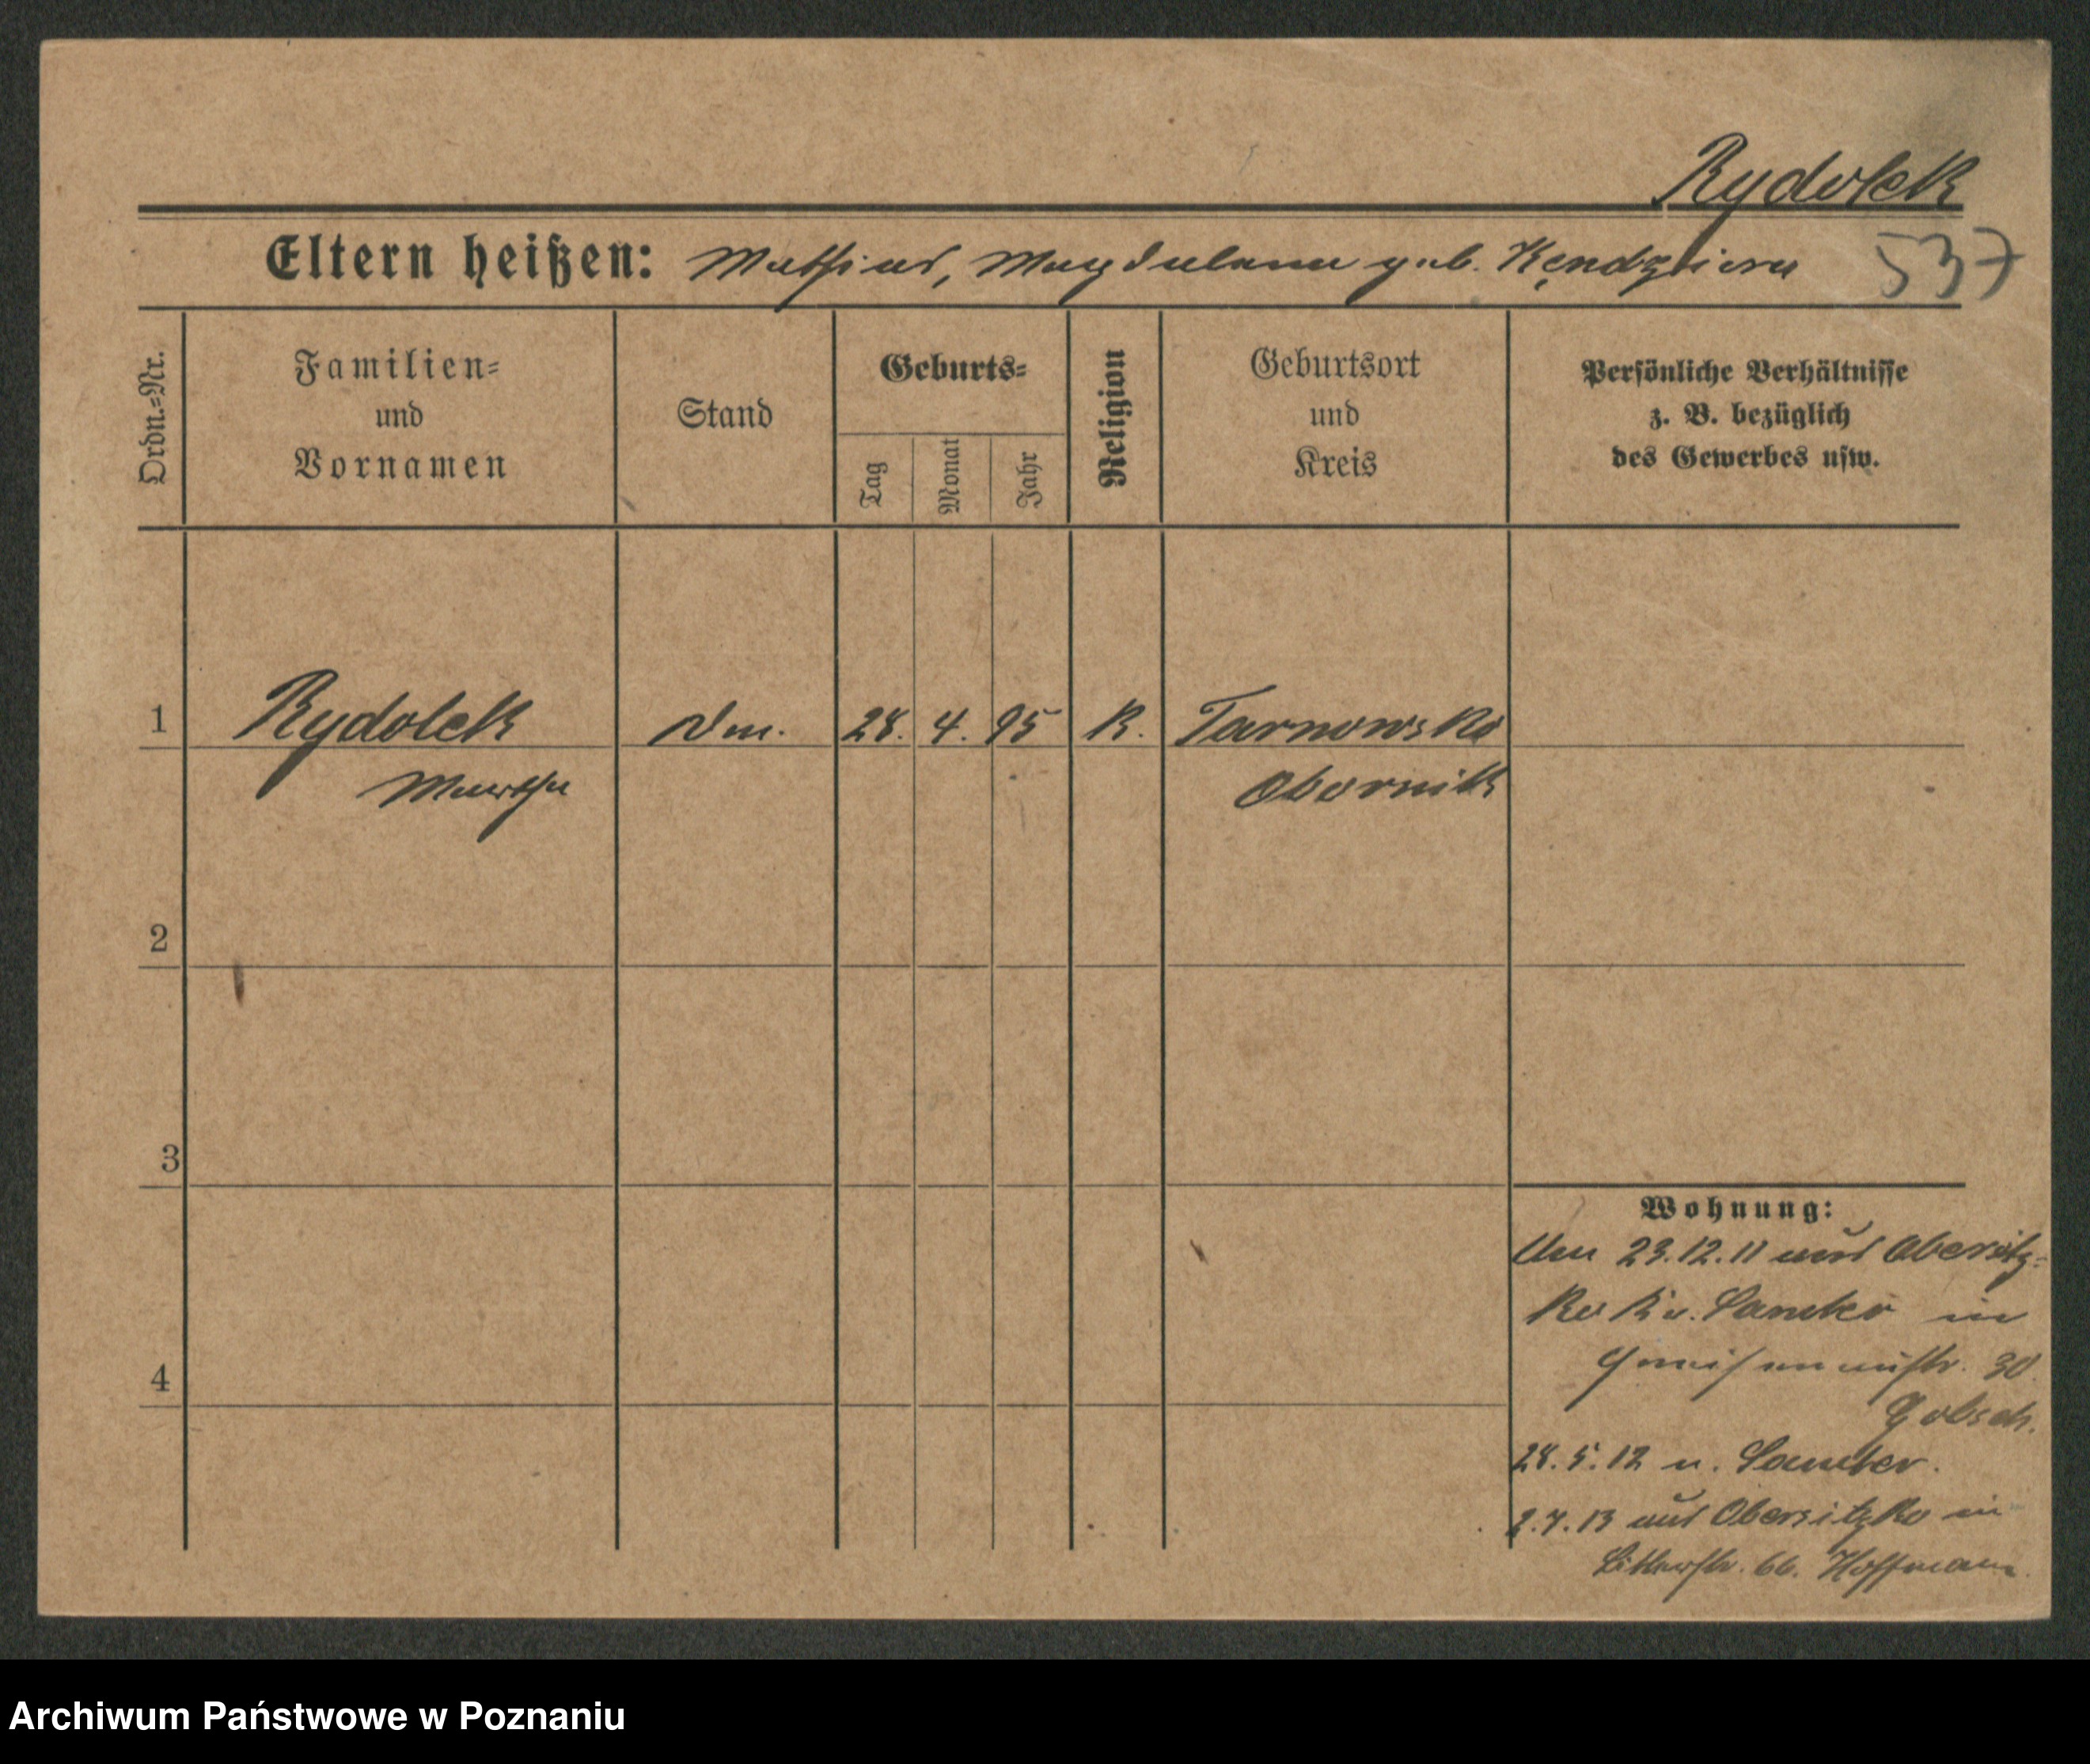 Rydolek
Eltern heißen: Mathias, Magdalena geb. Kendziora
537
Ordn.=Nr.
Familien=
und
Vornamen
Stand
Geburts=
Tag
Monat
Jahr
Religion
Geburtsort
und
Kreis
Persönliche Verhältnisse
z. B. bezüglich
des Gewerbes usw.
1 Rydolek 28. 4. 95 K. Tarnowko
Martha Obornik
2
3
4
Wohnung:
Am 23.12.11 aus Obersitz=
ko Kr. Samter in
Gneisenaustr. 30
28.5.12 n. Samter.
2.7.13 aus Obersitzko in
66. Hoffmann
Archiwum Państwowe w Poznaniu